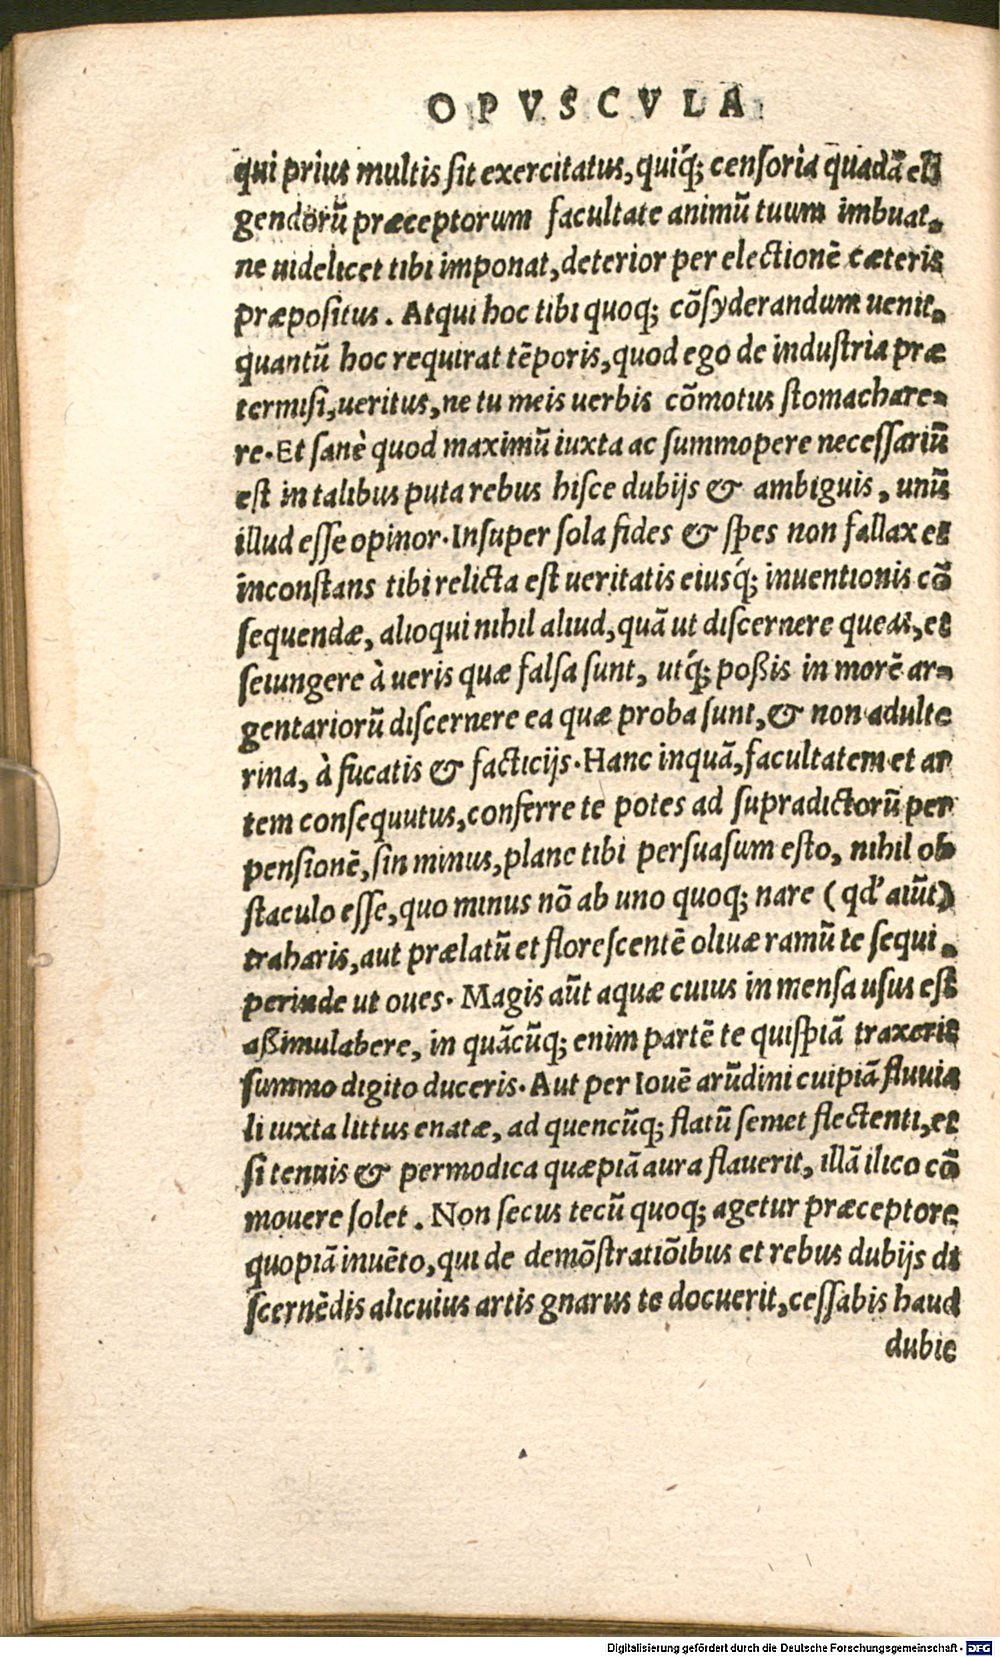 OPVSCVLA
qui prius multis sit exercitatus, quiq́; censoria quadā eli
gendorū præceptorum facultate animū tuum imbuat,
ne uidelicet tibi imponat, deterior per electionē cæteris
præpositus. Atqui hoc tibi quoq; cōsyderandum uenit,
quantū hoc requirat tēporis, quod ego de industria præ
termisi, ueritus, ne tu meis uerbis cōmotus stomachare-
re. Et sanè quod maximū iuxta ac summopere necessariū
est in talibus puta rebus hisce dubijs & ambiguis, unū
illud esse opinor. Insuper sola fides & spes non fallax et
inconstans tibi relicta est ueritatis eiusq́; inuentionis cō
sequendæ, alioqui nihil aliud, quā ut discernere queas, et
seiungere à ueris quæ falsa sunt, utq́; poßis in morē ar-
gentariorū discernere ea quæ proba sunt, & non adulte
rina, à fucatis & facticijs. Hanc inquā, facultatem et ar
tem consequutus, conferre te potes ad supradictorū per
pensionē, sin minus, plane tibi persuasum esto, nihil ob
staculo esse, quo minus nō ab uno quoq; nare (qd' aiūt)
traharis, aut prælatū et florescentē oliuæ ramū te sequi,
perinde ut oues. Magis aūt aquæ cuius in mensa usus est
aßimulabere, in quācūq; enim partē te quispiā traxeris
summo digito duceris. Aut per Iouē arūdini cuipiā fluuia
li iuxta littus enatæ, ad quencūq; flatū semet flectenti, et
si tenuis & permodica quæpiā aura flauerit, illā ilico cō
mouere solet. Non secus tecū quoq; agetur præceptore
quopiā inuēto, qui de demōstratiōibus et rebus dubijs di
scernēdis alicuius artis gnarus te docuerit, cessabis haud
dubie
Digitalisierung gefördert durch die Deutsche Forschungsgemeinschaft - DFG